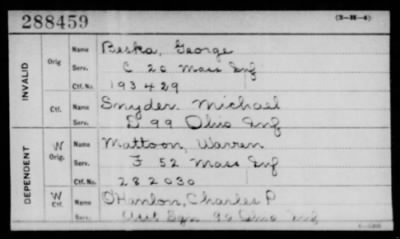 288459 (3-H-4)
INVALID
Orig Name Beska, George
Serv. C 20 Mass Inf
Ctf. No. 193429
Ctf. Name Snyder Michael
Serv. D 99 Ohio Inf
DEPENDENT
W Orig. Name Mattoon, Warren
Serv. F 52 Mass Inf
Ctf. No. 282030
W Ctf. Name O'Hanlon, Charles P
Serv. Asst Sgn 96 Ohio Inf